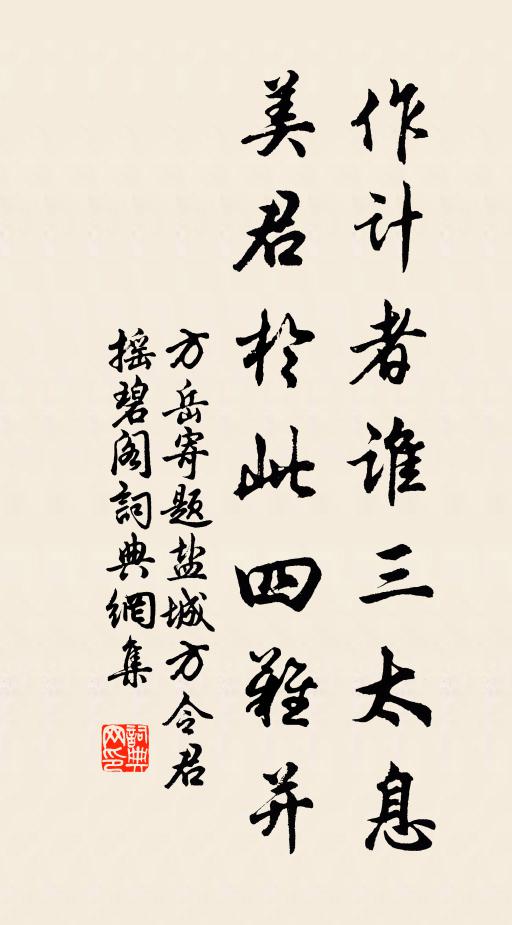 作计者谁三太息
美君於此四难并
方岳寄题盐城方令君
摇碧阁詞典網集
詞典网印